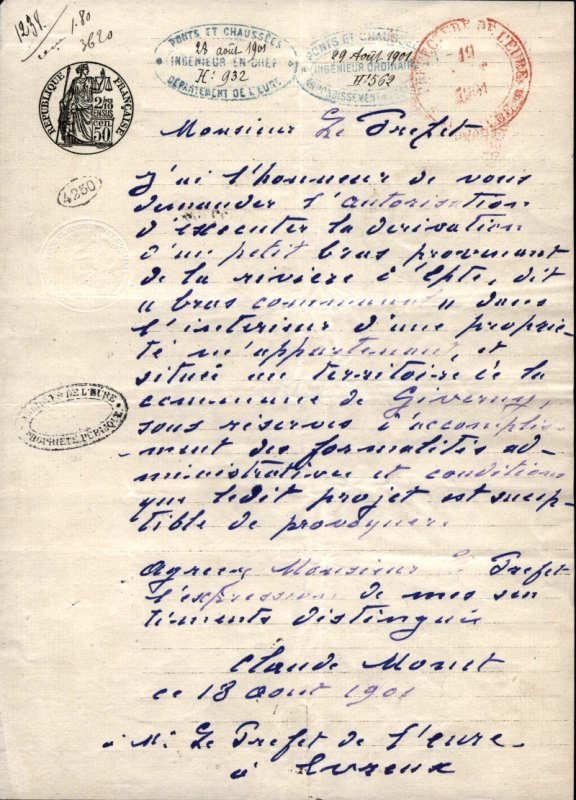 1238.
1.80
3620
PONTS ET CHAUSSÉES
28 août 1901
INGÉNIEUR EN CHEF
N: 932
DÉPARTEMENT DE L'EURE
PONTS ET CHAUSSÉES
29 Août 1901
INGÉNIEUR ORDINAIRE
N° 562
ARRONDISSEMENT
PRÉFECTURE DE L'EURE
19
RÉPUBLIQUE FRANÇAISE
2/10 EN SUS
50 cen.
4250
ARCHIVES DE L'EURE
PROPRIÉTÉ PUBLIQUE
Monsieur Le Prefet
J'ai l'honneur de vous
demander l'autorisation
d'executer la derivation
d'un petit bras provenant
de la rivière à l'Epte, dit
"bras communal" dans
l'interieur d'une proprie-
té m'appartenant, et
située au territoire de la
commune de Giverny,
sous réserves d'accomplis-
-ment des formalités ad-
-ministratives et conditions
que ledit projet est suscep-
tible de provoquer.
Agreez Monsieur Le Prefet
l'expression de mes sen
timents distingués
Claude Monet
ce 13 août 1901
à M: Le Prefet de l'eure.
à Evreux